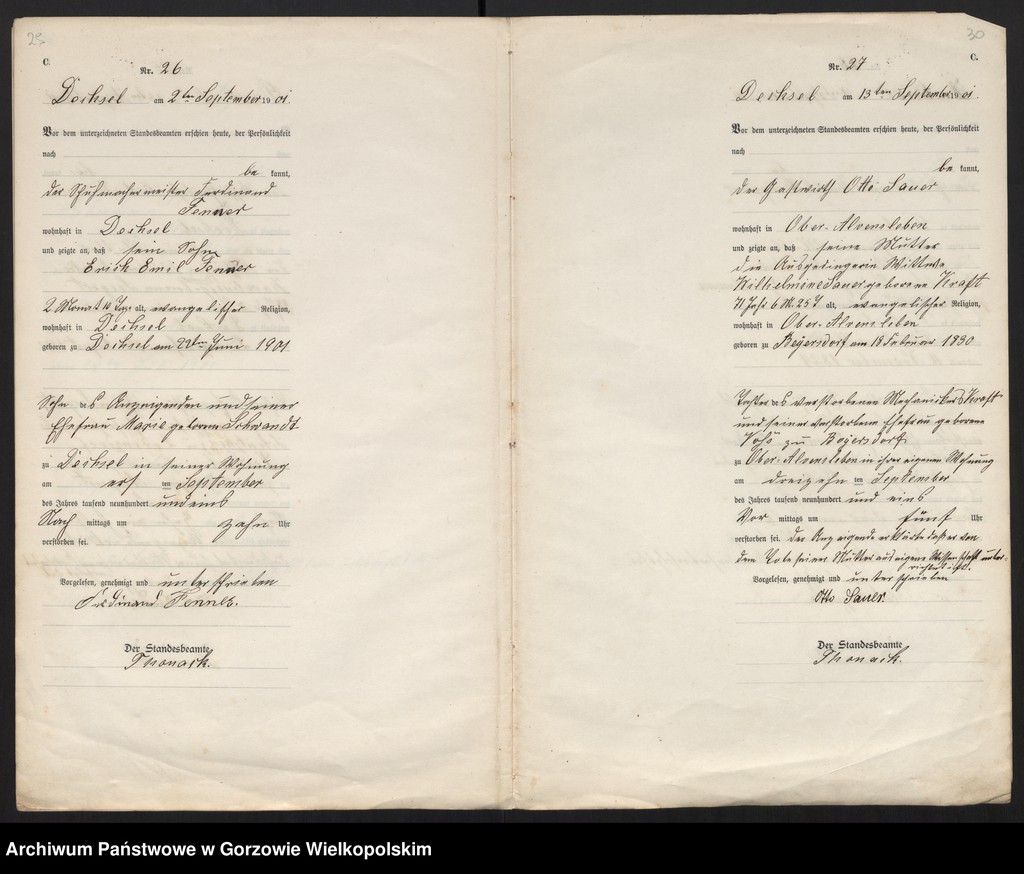 25
C.
Nr. 26
Dechsel am 2ten September 1901.
Vor dem unterzeichneten Standesbeamten erschien heute, der Persönlichkeit
nach
be kannt,
der Schuhmachermeister Ferdinand
Fenner
wohnhaft in Dechsel
und zeigte an, daß sein Sohn
Erich Emil Fenner
2 Monat 10 Tage alt, evangelischer Religion,
wohnhaft in Dechsel
geboren zu Dechsel am 22ten Juni 1901
Sohn des Anzeigenden und seiner
Ehefrau Marie geborene Schwandt
zu Dechsel in seiner Wohnung
am ersten September
des Jahres tausend neunhundert und eins
Nach mittags um zehn Uhr
verstorben sei.
Vorgelesen, genehmigt und unterschrieben
Ferdinand Fenner.
Der Standesbeamte
Thonack.
30
C.
Nr. 27
Dechsel am 13ten September 1901.
Vor dem unterzeichneten Standesbeamten erschien heute, der Persönlichkeit
nach
be kannt,
der Gastwirth Otto Sauer
wohnhaft in Ober-Alvensleben
und zeigte an, daß seine Mutter
die Ausgedingerin Wittwe
Wilhelmine Sauer geborene Kraft
71 Jahr 6 M. 25 T alt, evangelischer Religion,
wohnhaft in Ober-Alvensleben
geboren zu Beyersdorf am 18 Februar 1830
Tochter des verstorbenen Mechanikers Kraft
und seiner verstorbenen Ehefrau geborene
Voß zu Beyersdorf
zu Ober-Alvensleben in ihrer eigenen Wohnung
am dreizehn ten September
des Jahres tausend neunhundert und eins
Vor mittags um fünf Uhr
verstorben sei. Der Anzeigende erklärte daß er von
dem Tode seiner Mutter aus eigener Wissenschaft unter-
richtet sei.
Vorgelesen, genehmigt und unterschrieben
Otto Sauer.
Der Standesbeamte
Thonack.
Archiwum Państwowe w Gorzowie Wielkopolskim